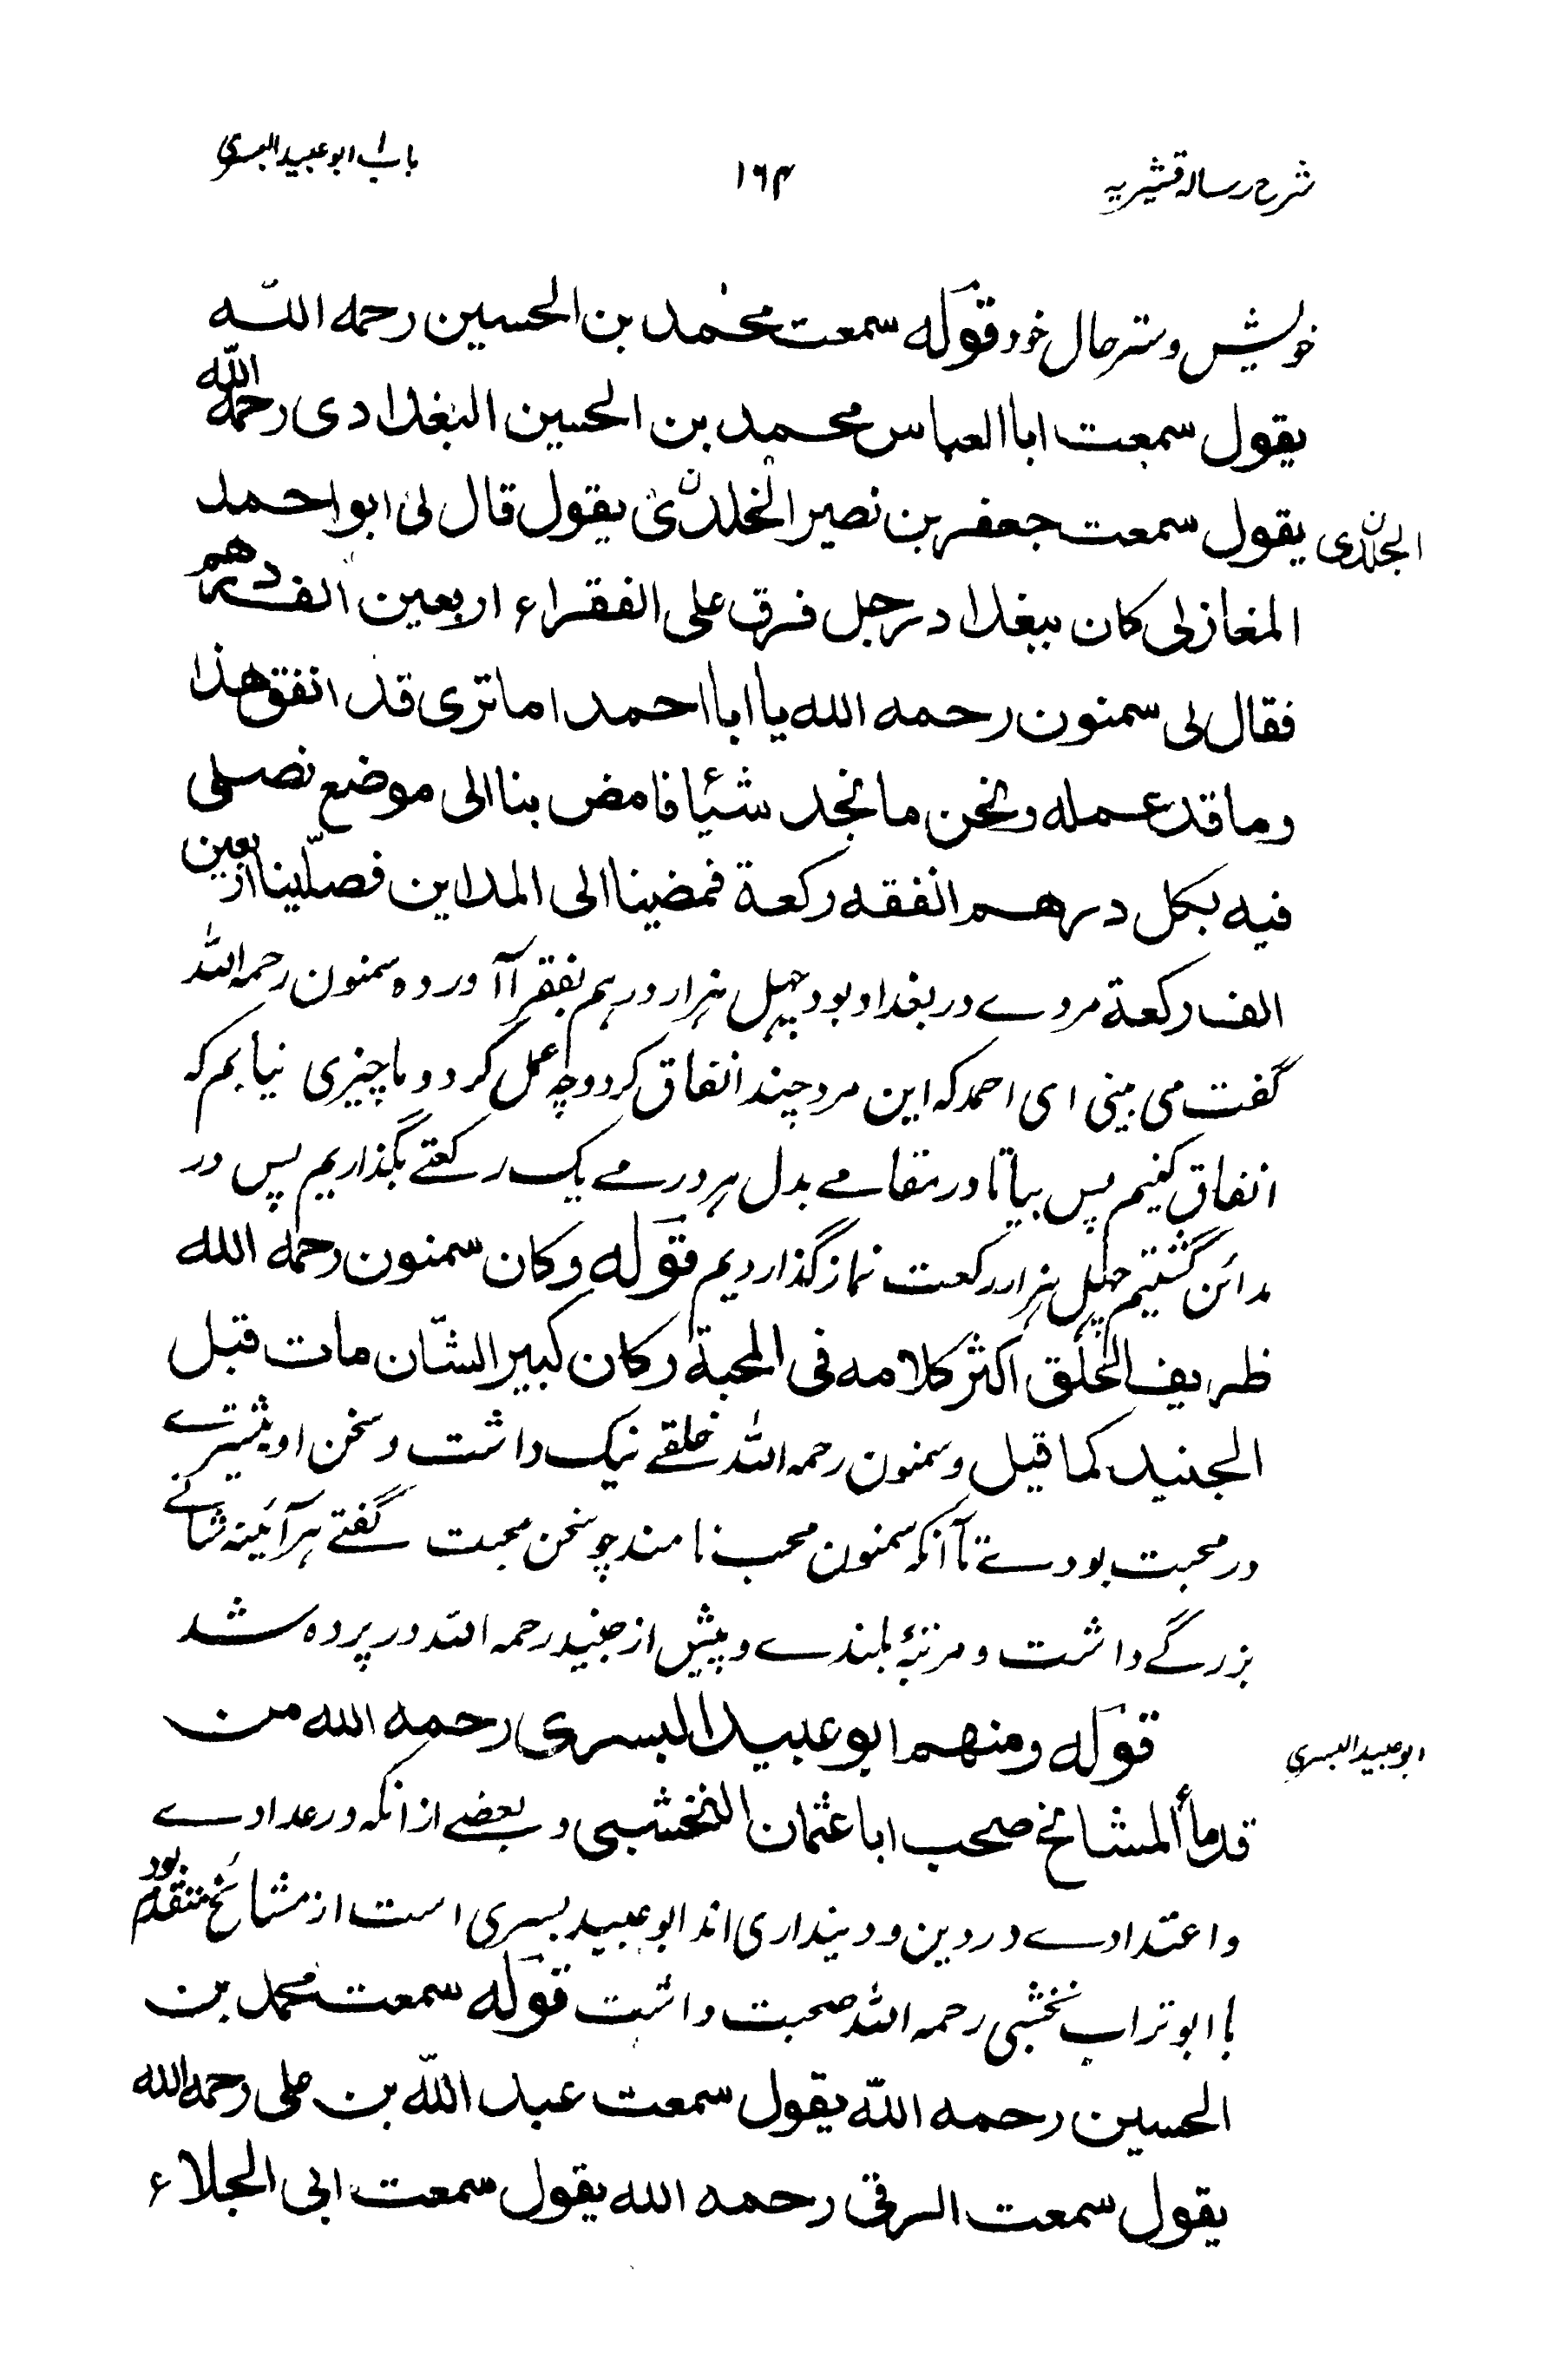 شرح رسالہ قشیریہ
۱۶۴
باب ابو عبید البسری
خویش و ستر حال خود قوله سمعت محمد بن الحسین رحمه اللّٰه
یقول سمعت ابا العباس محمد بن الحسین البغدادی رحمه اللّٰه
یقول سمعت جعفر بن نصیر الخلدی یقول قال لی ابو احمد
المغازلی کان ببغداد رجل فرق علی الفقراء اربعین الف درهم
فقال لی سمنون رحمه الله یا ابا احمد اما تری قد انفق هذا
وما قد عمله ونحن ما نجد شیئا فامض بنا الی موضع نصلی
فیه بکل درهم انفقه رکعة فمضینا الی المداین فصلّینا اربعین
الف رکعة مردے در بغداد بود چہل ہزار درہم بفقرا آورده سمنون رحمہ اللہ
گفت می بینی ای احمد کہ این مرد چند انفاق کرد و چہ عمل کرد و ما چیزی نیابم کہ
انفاق کنیم پس بیا تا در مقامے بدل ہر درمے یک رکعتے بگذاریم پس در
مدائن گشتیم چہل ہزار رکعت نماز گذاردیم قوله وکان سمنون رحمه الله
ظریف الخلق اکثر کلامه فی المحبة وکان کبیر الشّان مات قبل
الجنید کما قیل و سمنون رحمہ اللہ خلقے نیک داشت و سخن او بیشترے
در محبت بودے تا آنکہ سمنون محب نامند چو سخن محبت گفتے ہر آئینہ شانے
بزرگے داشت و مرتبۂ بلندے و پیش از جنید رحمہ اللہ در پردہ شد
قوله ومنهم ابو عبید البسری رحمه الله من
ابو عبید البسری
قدمأ المشائخ صحب ابا عثمان النخشبی و بعضے از انکہ در عدادے
و اعتدادے در دین و دینداری اند ابو عبید بسری است از مشائخ متقدم بود
با ابو تراب نخشبی رحمہ اللہ صحبت داشت قوله سمعت محمد بن
الحسین رحمه اللّٰه یقول سمعت عبد اللّٰه بن علی رحمه الله
یقول سمعت الرقی رحمه الله یقول سمعت ابی الجلاء